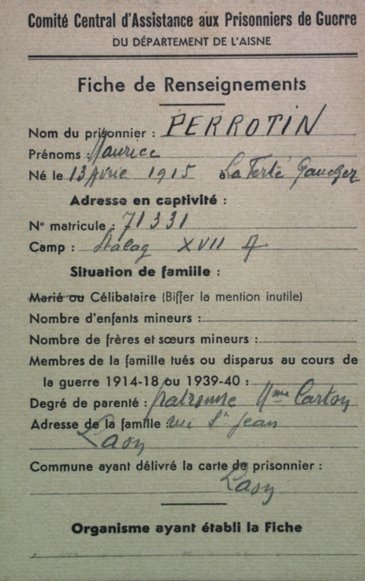 Comité Central d'Assistance aux Prisonniers de Guerre
DU DÉPARTEMENT DE L'AISNE
Fiche de Renseignements
Nom du prisonnier : PERROTIN
Prénoms : Maurice
Né le 13 Avril 1915 à La Ferté Gaucher
Adresse en captivité :
N° matricule : 71331
Camp : Stalag XVII A
Situation de famille :
Marié ou Célibataire (Biffer la mention inutile)
Nombre d'enfants mineurs :
Nombre de frères et sœurs mineurs :
Membres de la famille tués ou disparus au cours de
la guerre 1914-18 ou 1939-40 :
Degré de parenté : patronne Mme
Adresse de la famille rue St Jean
Laon
Commune ayant délivré la carte de prisonnier :
Laon
Organisme ayant établi la Fiche